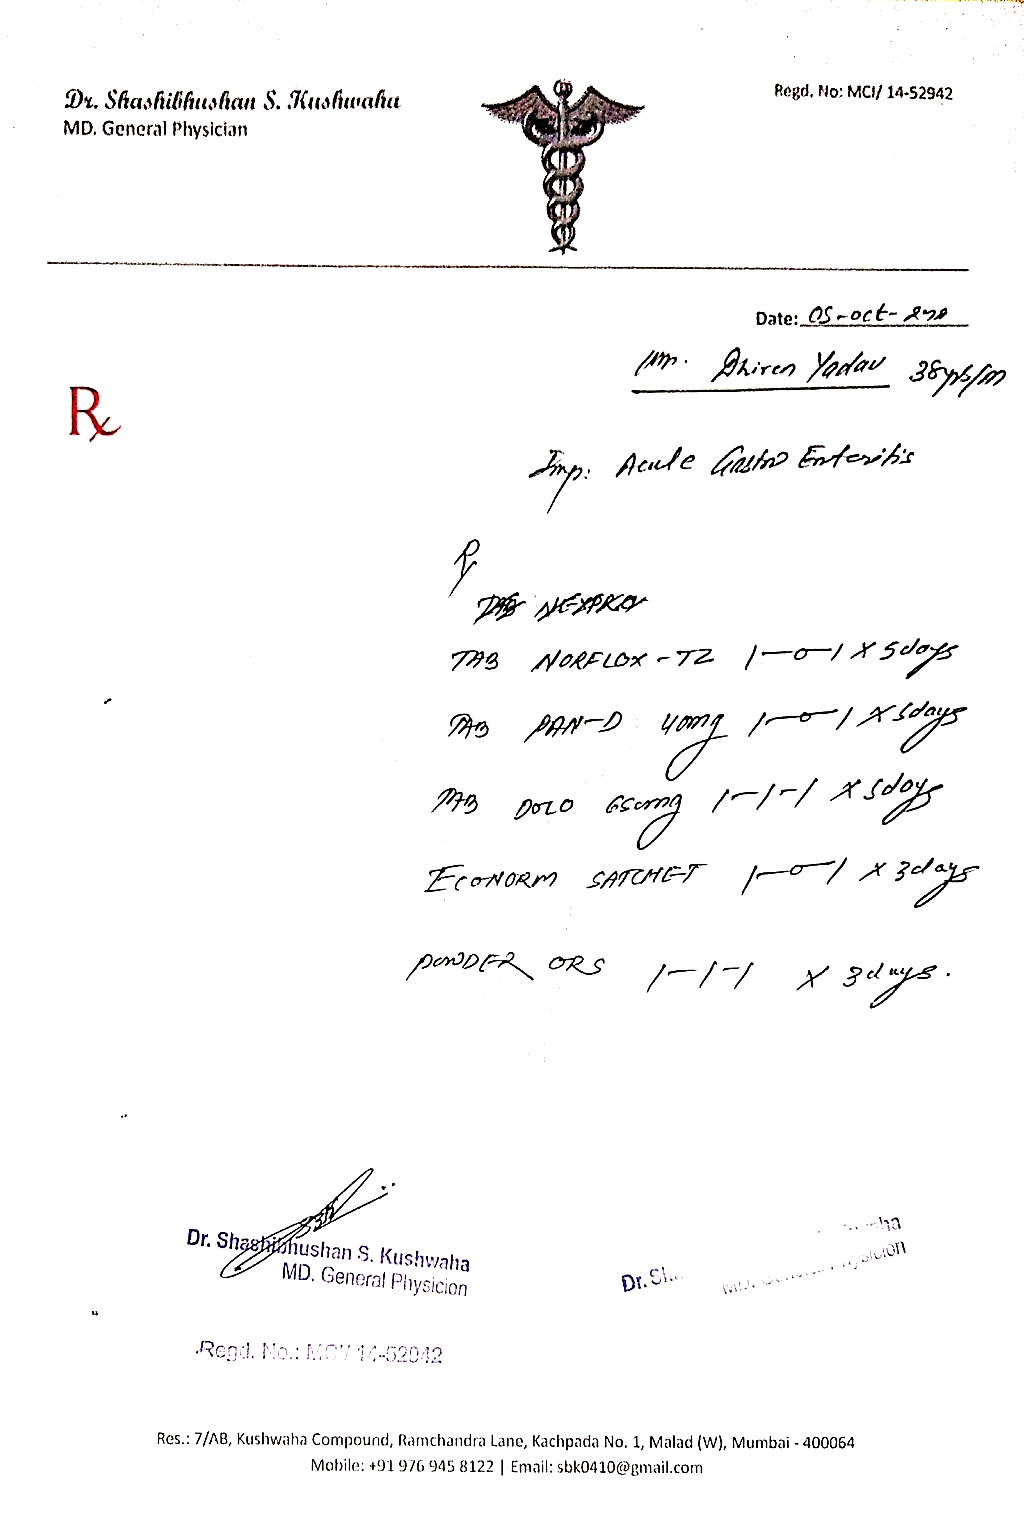 Dr. Shashibhushan S. Kushwaha
MD. General Physician
Regd. No: MCI/ 14-52942
Date: 05-oct-
Mr. Dhiren Yadav 38yrs/m
Rx
Imp: Acute Gastro Enteritis
Rx
TAB NEXPRO
TAB NORFLOX-TZ 1-0-1 X 5days
TAB PAN-D 40mg 1-0-1 X 5days
TAB DOLO 650mg 1-1-1 X 5days
ECONORM SATCHET 1-0-1 X 3days
POWDER ORS 1-1-1 X 3days.
Dr. Shashibhushan S. Kushwaha
MD. General Physician
Regd. No.: MCI/ 14-52942
Dr. Sh
Physician
Res.: 7/AB, Kushwaha Compound, Ramchandra Lane, Kachpada No. 1, Malad (W), Mumbai - 400064
Mobile: +91 976 945 8122 | Email: sbk0410@gmail.com